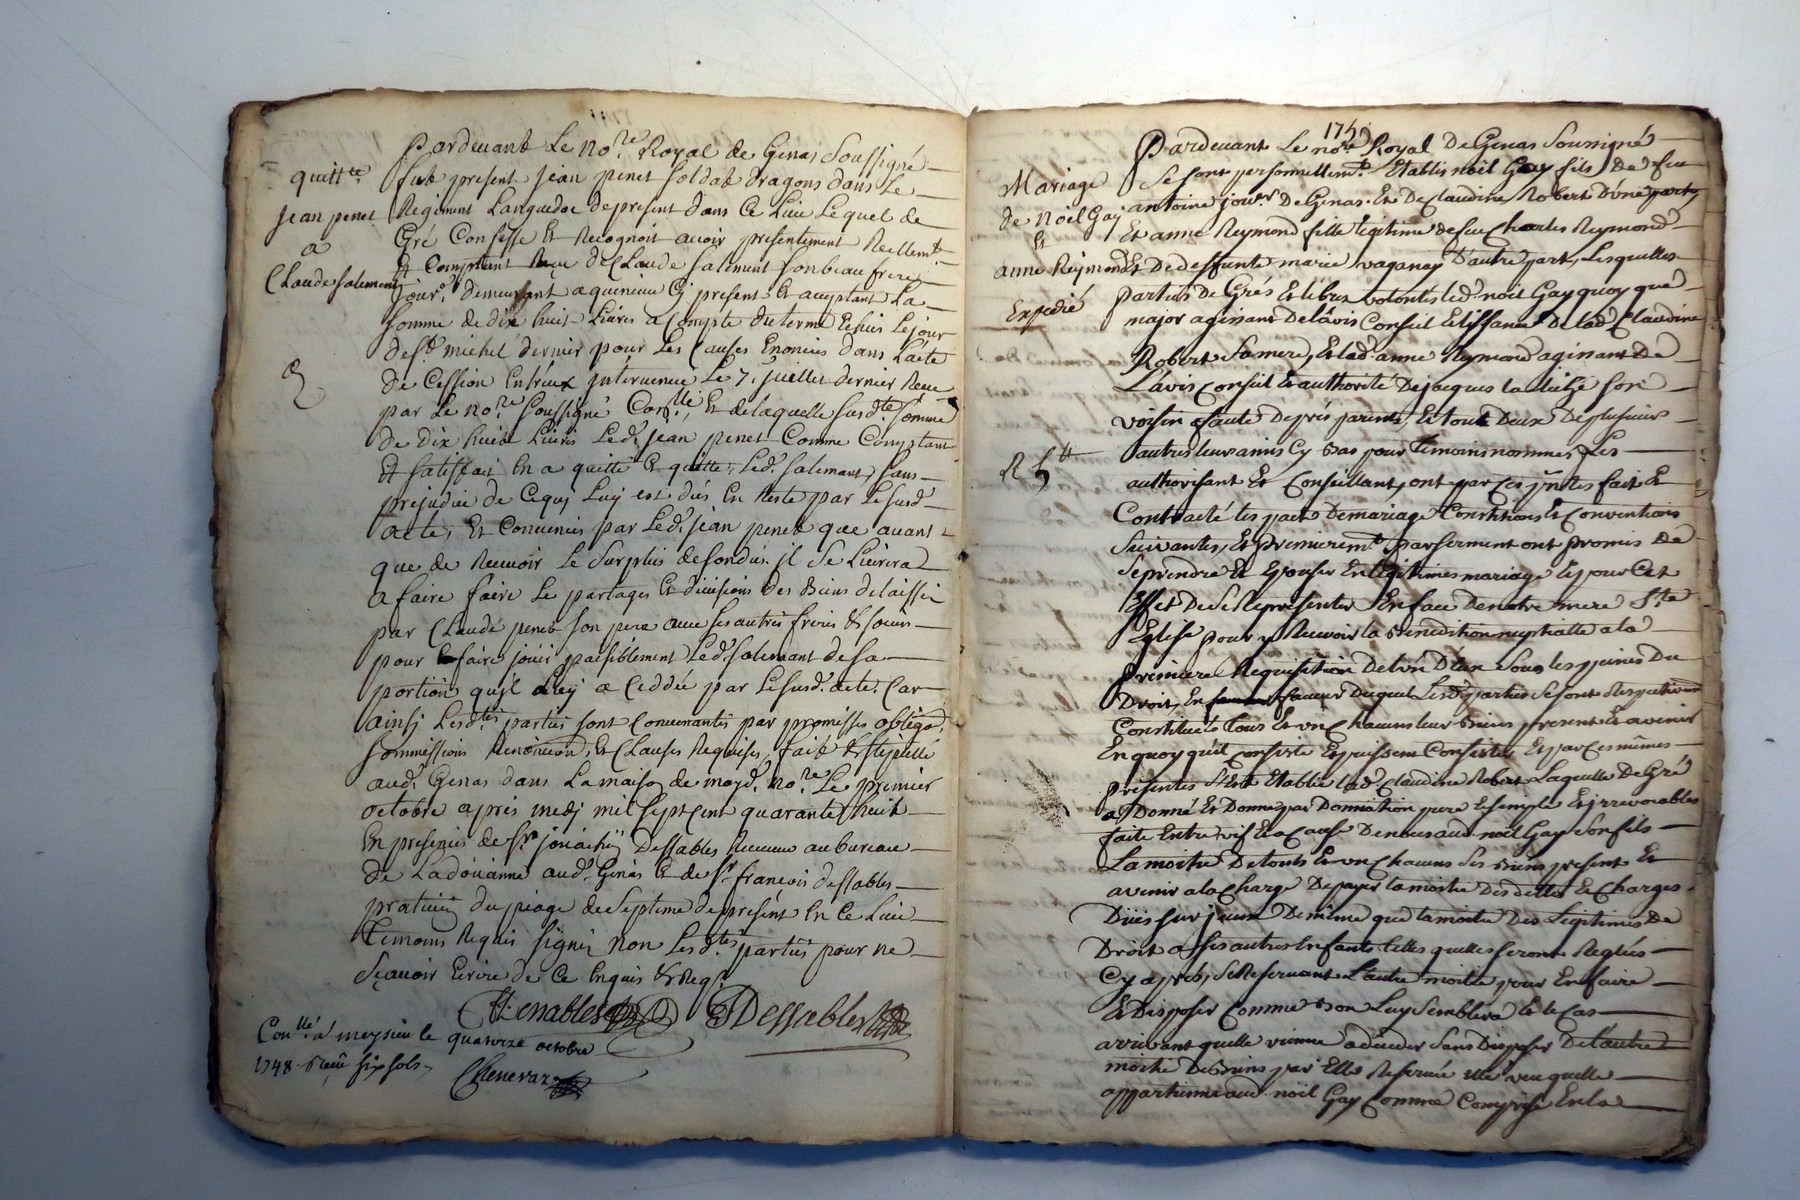 quitt.ce
jean penet
a
Claude salement
Pardevant Le no.re Royal de Genas Soussigné
fut present jean penet soldat dragons dans Le
Regiment Languedoc depresent dans Ce Lieu Lequel de
Gré Confesse Et Recognoit avoir presentement Reellem.t
Et Comptant Reçu de Claude salement son beau frere
jour.r demeurant a queneuu Cy present Et acceptant La
somme de dix huit Livres a Compte du terme Echus Lejour
de s.t michel dernier pour Les Causes Enoncées dans L'acte
de Cession Entreux intervenue Le 7. juillet dernier Receu
par Le no.re soussigné Con.llé Et delaquelle susd.te somme
de Dix huit Livres Led. jean penet Comme Comptant
Et satisfait En a quitté Et quitte Led. salemant, sans
prejudice de Cequi Luy est dus En Reste par Le susd.
acte, Et Convenus par Led. jean penet que avant
que de Recevoir Le surplus desondus il se Livrera
a faire faire Le partages Et divisions Des Biens delaissés
par Claude penet son pere avec ses autres freres & soeurs
pour faire jouir paisiblement Led. salemant de sa
portion qu'il luy a Ceddée par Le susd. acte. Car
ainsy Lesd.tes parties sont Convenantes par promesses obligaõ.
sommissions Renonciaõ. Et Clauses Requises, fait & stipullé
aud. Genas dans La maison de moyd. no.re Le premier
octobre aprés medy mil sept Cent quarante huit
En presences de s.r joüachim Dessables Receveur au bureau
de Ladoüanne aud. Genas Et de s.r francois dessables
praticien du peage de Septeme depresent En Ce Lieu
temoins Requis signés non Lesd.tes parties pour ne
sçavoir Ecrire de Ce Enquis & Req.s
Dessables
Con.llé a meysieu le quatorze octobre
1748 Receu six sols
Chenevaz
174
Mariage
de Noël Gay
Et
anne Reymond
Expedié
R 5 tt
Pardevant Le no.re Royal De Genas Soussigné
Se sont personnellem.t Etablis noël Gay fils De feu
antoine jour.r De Genas. Et De Claudine Robert D'une part
Et anne Reymond fille legitime de feu Charles Reymond
Et De deffunte marie vaganay D'autre part, Lesquelles
parties De Grés Et libres volontés led. noël Gay quoy que
major agissant De L'avis Conseil Et Lissance De lad. Claudine
Robert Sa mere, Et lad. anne Reymond agissant De
L'avis Conseil & authorité De jacques son
voisin a faute De prés parents, Et tout Deux De plusieurs
autres leurs amis Cy Bas pour Temoins nommés, Les
authorisant Et Conseillant, ont par Ces p.ntes fait &
Contracté les pact De mariage Constitutions Et Conventions
Suivantes, Et premierem.t par serment ont promis De
Se prendre Et Epouser En legitimes mariage Et pour Cet
Effet De Se Representer En face De notre mere S.te
Eglise pour y Recevoir la Benediction nuptialle a la
premiere Requisition De l'un D'eux Sous les peines Du
Droit, En faveur Duquel Lesd. parties Se sont Respectivem.t
Constitués Tous Et un Chacuns leur Biens present Et avenir
En quoy qu'il Consiste Et puissent Consister Et par Ces mêmes
presentes S'est Etablie lad. Claudine Robert Laquelle De Gré
a Donné Et Donne par Donnation pure Et simple Et irrevocables
faite Entre vif Et a Cause De noces aud. noël Gay Son fils
La moitié De touts Et un Chacuns Ses Biens present Et
avenir a la Charge De payer la moitié Des dettes Et Charges
Düës Sur jceux De même que la moitié Des Legitimes De
Droit a Ses autres Enfants telles quelles seront Reglés
Cy aprés, Se Reservant L'autre moitié pour En faire
& Disposer Comme Bon Luy Semblera Et le Cas
arrivant quelle vienne a deceder Sans Disposer De l'autre
moitié De Biens par Elle Reservée Elle veu quelle
appartienne aud. noël Gay Comme Comprise En la